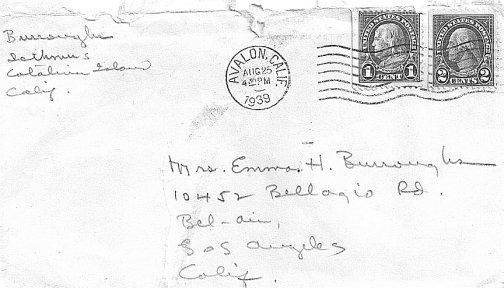 Burroughs
Isthmus
Catalina Island
Calif.
AVALON, CALIF.
AUG 25
4 PM
1939
1 CENT 1
2 CENTS 2
Mrs. Emma H. Burroughs
10452 Bellagio Rd.
Bel-air,
Los Angeles
Calif.